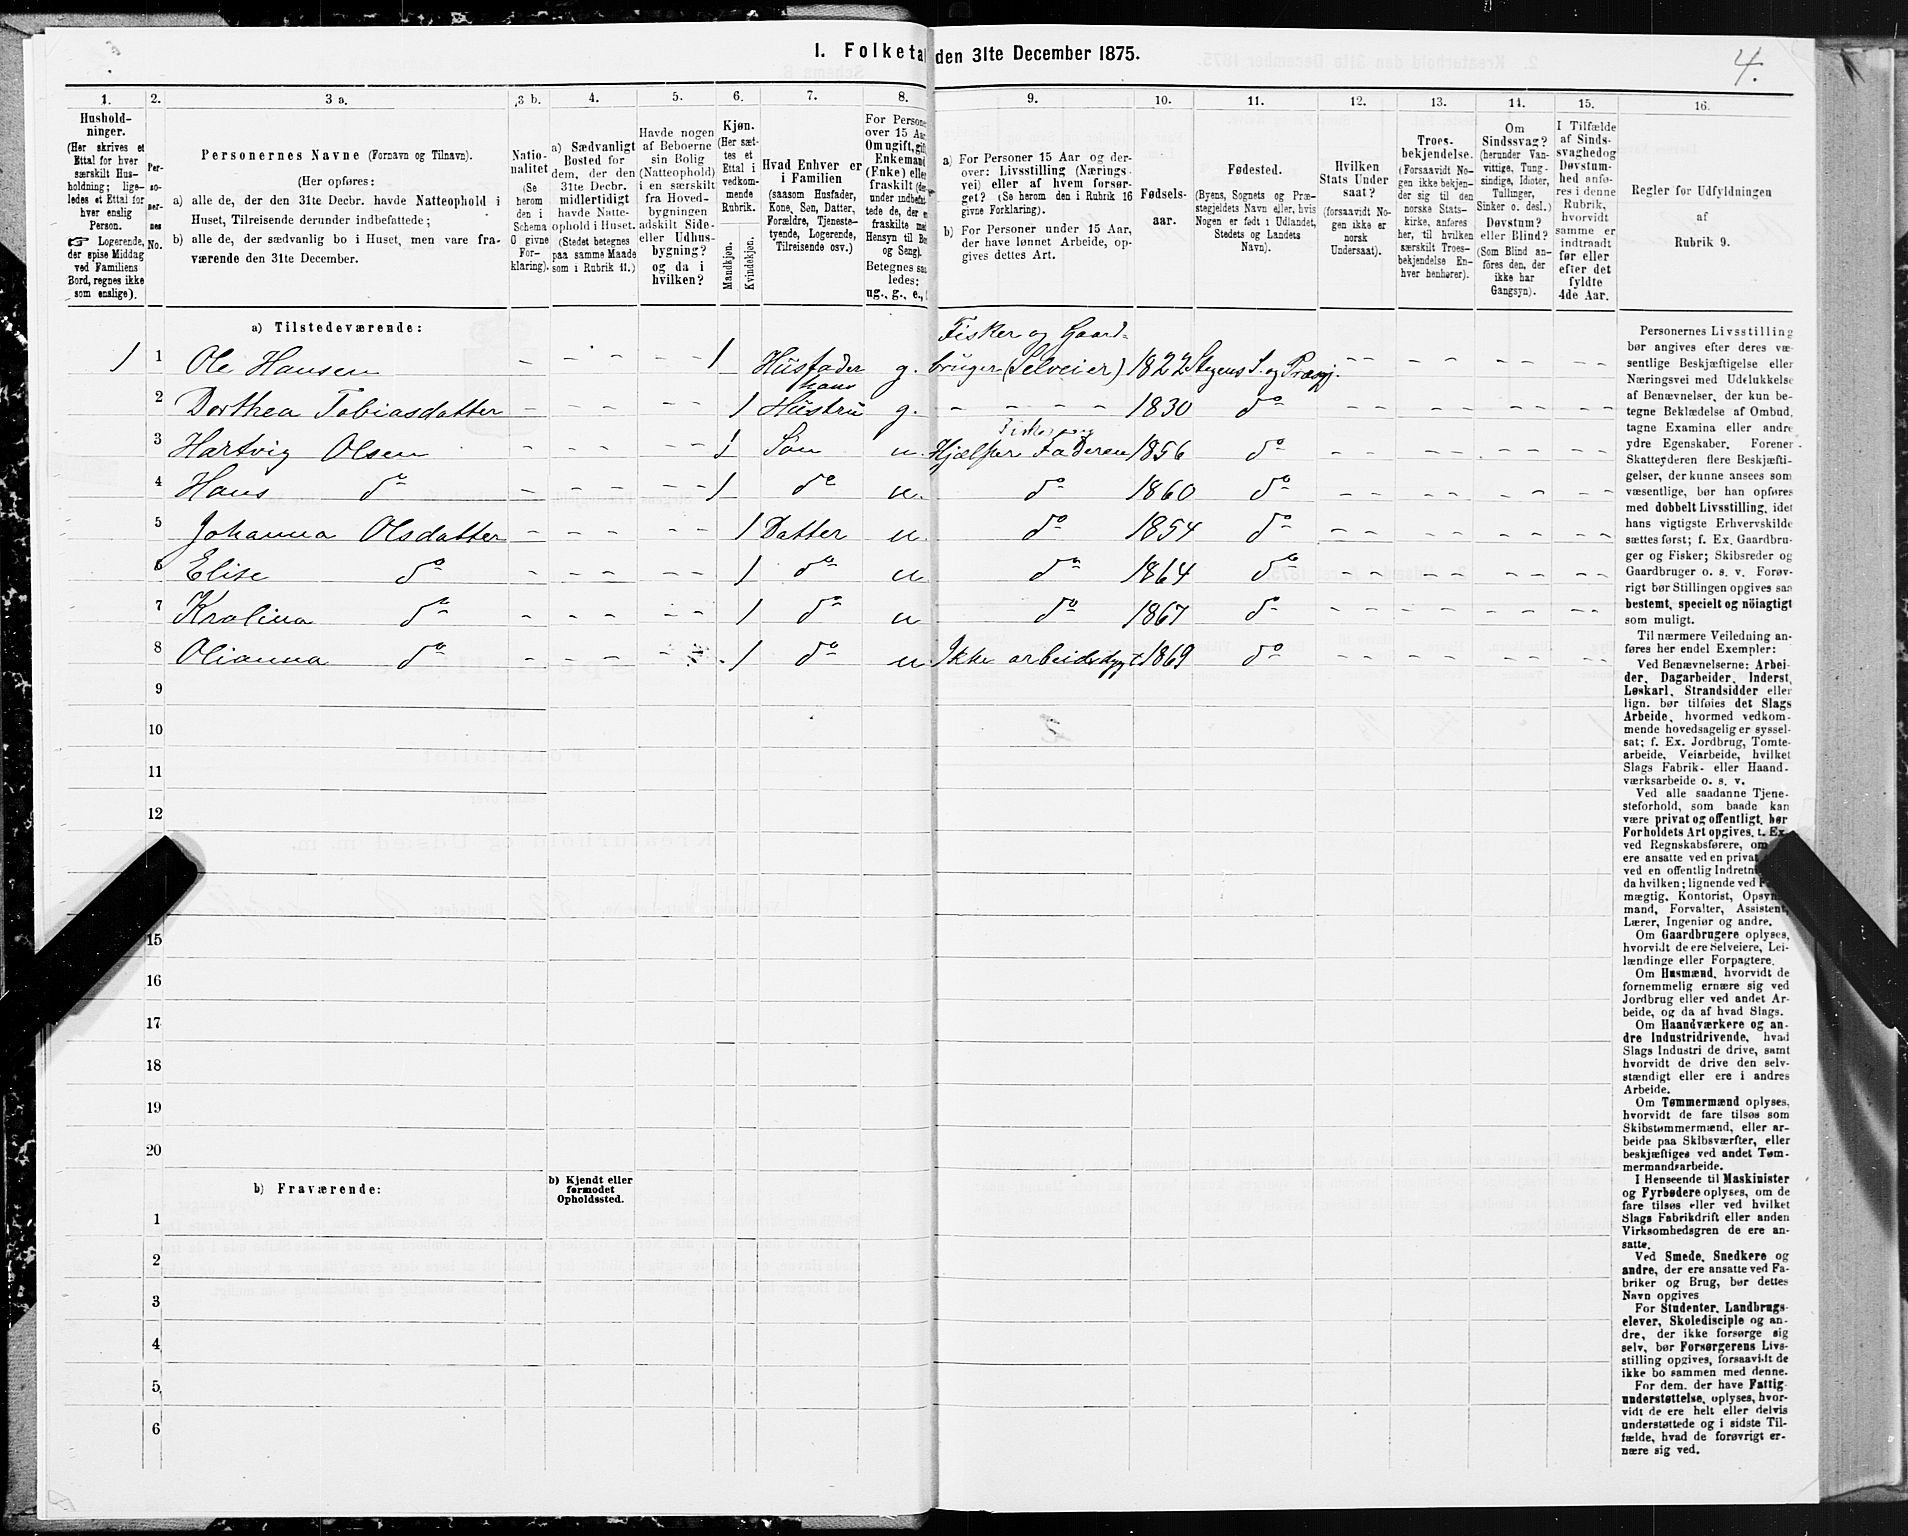 4.
I. Folketal den 31te December 1875.
1. 2. 3 a. 3 b. 4. 5. 6. 7. 8. 9. 10. 11. 12. 13. 14. 15. 16.
Hushold-
ninger.
(Her skrives et
Ettal for hver
særskilt Hus-
holdning; lige-
ledes et Ettal for
hver enslig
Person.
☞ Logerende,
der spise Middag
ved Familiens
Bord, regnes ikke
som enslige).
Per-
so-
ner-
nes
No.
Personernes Navne (Fornavn og Tilnavn).
(Her opføres:
a) alle de, der den 31te Decbr. havde Natteophold i
Huset, Tilreisende derunder indbefattede;
b) alle de, der sædvanlig bo i Huset, men vare fra-
værende den 31te December.
Natio-
nalitet
(Se
herom
den i
Schema
O givne
For-
klaring).
a) Sædvanligt
Bosted for
dem, der den
31te Decbr.
midlertidigt
havde Natte-
ophold i Huset.
(Stedet betegnes
paa samme Maade
som i Rubrik 11.)
Havde nogen
af Beboerne
sin Bolig
(Natteophold)
i en særskilt
fra Hoved-
bygningen
adskilt Side-
eller Udhus-
bygning?
og da i
hvilken?
Kjøn.
(Her sæt-
tes et
Ettal i
vedkom-
mende
Rubrik.
Mandkjøn.
Kvindekjøn.
Hvad Enhver er
i Familien
(saasom Husfader,
Kone, Søn, Datter,
Forældre, Tjeneste-
tyende, Logerende,
Tilreisende osv.)
For Persone
over 15 Aar
Om ugift, gift
Enkemand
(Enke) eller
fraskilt (der
under indbefat
tede de, der e
fraskilte med
Hensyn til Bo
og Seng).
Betegnes saa
ledes:
ug., g., e.,
a) For Personer 15 Aar og der-
over: Livsstilling (Nærings-
vei) eller af hvem forsør-
get? (Se herom den i Rubrik 16
givne Forklaring).
b) For Personer under 15 Aar,
der have lønnet Arbeide, op-
gives dettes Art.
Fødsels-
aar.
Fødested.
(Byens, Sognets og Præ-
stegjeldets Navn eller, hvis
Nogen er født i Udlandet,
Stedets og Landets
Navn).
Hvilken
Stats Under
saat?
(forsaavidt No-
gen ikke er
norsk
Undersaat).
Troes-
bekjendelse.
(Forsaavidt No-
gen ikke bekjen-
der sig til den
norske Stats-
kirke, anføres
her, til hvilken
særskilt Troes-
bekjendelse En-
hver henhører).
Om
Sindssvag?
(herunder Van-
vittige, Tung-
sindige, Idioter,
Tullinger,
Sinker o. desl.)
Døvstum?
eller Blind?
(Som Blind an-
føres den, der
ikke har
Gangsyn).
I Tilfælde
af Sinds-
svaghed og
Døvstum-
hed anfø-
res i denne
Rubrik,
hvorvidt
samme er
indtraadt
før eller
efter det
fyldte
4de Aar.
Regler for Udfyldningen
af
Rubrik 9.
a) Tilstedeværende:
1 1 Ole Hansen - - - - - - 1 Husfader g. Fisker og Gaard-
bruger (Selveier) 1822 Stegens S. og Præstgj. - - - - - -
2 Dorthea Tobiasdatter - - - - - - 1 hans
Hustru g. - - - - 1830 do - - - - - - - -
3 Hartvig Olsen - - - - - - 1 Søn u. Hjælper Faderen 1856 do - - - - - - - -
4 Hans do - - - - - - 1 do u. do 1860 do - - - - - - - -
5 Johanna Olsdatter - - - - - - 1 Datter u. do 1854 do - - - - - - - -
6 Elise do - - - - - - 1 do u do 1864 do - - - - - - - -
7 Kralina do - - - - - - 1 do u do 1867 do - - - - - - - -
8 Olianna do - - - - - 1 do u Ikke arbeidsdygt 1869 do
9
10
11
12
15
16
17
18
19
20
b) Fraværende:
b) Kjendt eller
formodet
Opholdssted.
1
2
3
4
5
6
Personernes Livsstilling
bør angives efter deres væ-
sentlige Beskjæftigelse eller
Næringsvei med Udelukkelse
af Benævnelser, der kun be-
tegne Beklædelse af Ombud,
tagne Examina eller andre
ydre Egenskaber. Forener
Skatteyderen flere Beskjæfti-
gelser, der kunne ansees som
væsentlige, bør han opføres
med dobbelt Livsstilling, idet
hans vigtigste Erhvervskilde
sættes først; f. Ex. Gaardbru-
ger og Fisker; Skibsreder og
Gaardbruger o. s. v. Forøv-
rigt bør Stillingen opgives saa
bestemt, specielt og nöiagtigt
som muligt.
Til nærmere Veiledning an-
føres her endel Exempler:
Ved Benævnelserne: Arbei-
der, Dagarbeider, Inderst,
Løskarl, Strandsidder eller
lign. bør tilføies det Slags
Arbeide, hvormed vedkom-
mende hovedsagelig er syssel-
sat; f. Ex. Jordbrug, Tomte-
arbeide, Veiarbeide, hvilket
Slags Fabrik- eller Haand-
værksarbeide o. s. v.
Ved alle saadanne Tjene-
steforhold, som baade kan
være privat og offentligt, bør
Forholdets Art opgives, t. Ex.
ved Regnskabsførere, om
ere ansatte ved en privat
ved en offentlig Indretni
da hvilken; lignende ved F
mægtig, Kontorist, Opsyn
mand, Forvalter, Assistent,
Lærer, Ingeniør og andre.
Om Gaardbrugere oplyses,
hvorvidt de ere Selveiere, Lei-
lændinge eller Forpagtere.
Om Husmænd, hvorvidt de
fornemmelig ernære sig ved
Jordbrug eller ved andet Ar-
beide, og da af hvad Slags.
Om Haandværkere og an-
dre Industridrivende, hvad
Slags Industri de drive, samt
hvorvidt de drive den selv-
stændigt eller ere i andres
Arbeide.
Om Tømmermænd oplyses,
hvorvidt de fare tilsøs som
Skibstømmermænd, eller ar-
beide paa Skibsværfter, eller
beskjæftiges ved andet Tøm-
mermandsarbeide.
I Henseende til Maskinister
og Fyrbødere oplyses, om de
fare tilsøs eller ved hvilket
Slags Fabrikdrift eller anden
Virksomhedsgren de ere an-
satte.
Ved Smede, Snedkere og
andre, der ere ansatte ved Fa-
briker og Brug, bør dettes
Navn opgives
For Studenter, Landbrugs-
elever, Skoledisciple og an-
dre, der ikke forsørge sig
selv, bør Forsørgerens Livs-
stilling opgives, forsaavidt de
ikke bo sammen med denne.
For dem, der have Fattig-
understøttelse, oplyses, hvor-
vidt de ere helt eller delvis
understøttede og i sidste Til-
fælde, hvad de forøvrigt er-
nære sig ved.